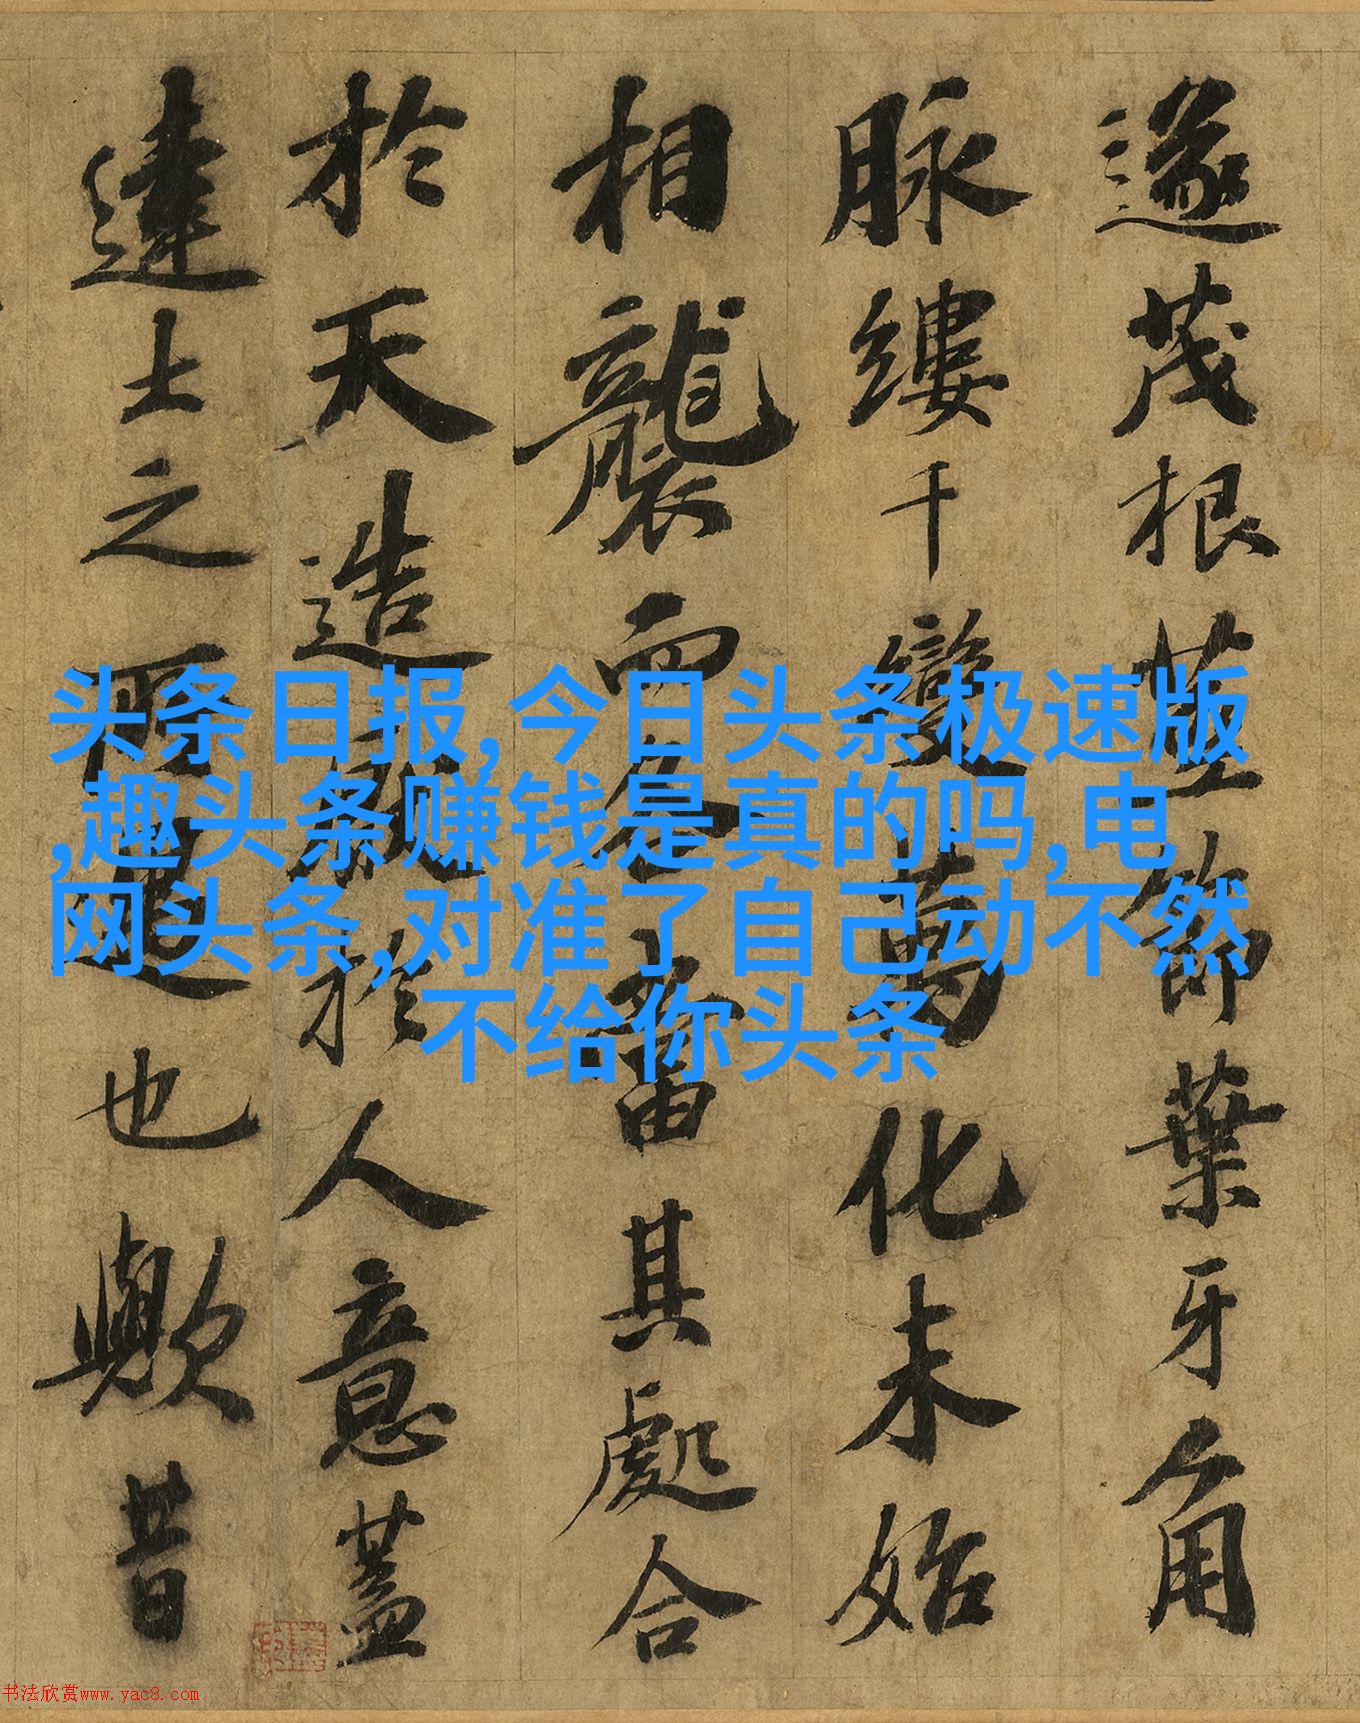 遂茂根莖節葉牙角
脉縷千變萬化未始
相襲而各當其處合
於天造厭於人意蓋
達士之所寓也歟昔
头条日报,今日头条极速版
,趣头条赚钱是真的吗,电
网头条,对准了自己动不然
不给你头条
书法欣赏www.yac8.com